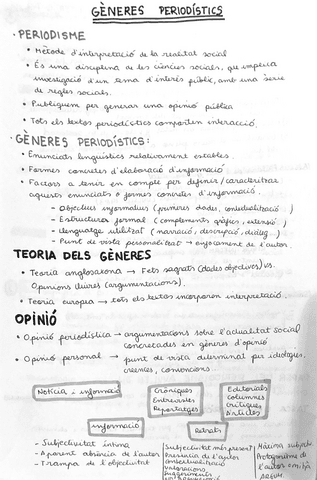 GÈNERES PERIODÍSTICS
· PERIODISME
• Mètode d'interpretació de la realitat social
• És una disciplina de les ciències socials, que implica
investigació d'un tema d'interès públic, amb una sèrie
de regles socials.
• Publiquem per generar una opinió pública
• Tots els textos periodístics comporten interacció.
· GÈNERES PERIODÍSTICS:
• Enunciats lingüístics relativament estables.
• Formes concretes d'elaboració d'informació
• Factors a tenir en compte per definir/caracteritzar
aquests enunciats o formes concretes d'informació.
- Objectius informatius (primeres dades, contextualització)
- Estructura formal (complements gràfics, extensió)
- Llenguatge utilitzat (narració, descripció, diàleg...)
- Punt de vista personalitzat → enfocament de l'autor.
TEORIA DELS GÈNERES
• Teoria anglosaxona → Fets sagrats (dades objectives) vs.
Opinions lliures (argumentacions).
• Teoria europea → tots els textos incorporen interpretació.
OPINIÓ
• Opinió periodística → argumentacions sobre l'actualitat social
concretades en gèneres d'opinió
• Opinió personal → punt de vista determinat per ideologies,
creences, conviccions.
Notícia - informació
Cròniques
Entrevistes
Reportatges
Editorials
columnes
crítiques
Articles
informació
retrats
- Subjectivitat íntima
- Aparent absència de l'autor
- Trampa de l'objectivitat
Subjectivitat més present
Presència de l'autor
contextualització
valoracions
suggeriments
Màxima subject.
Protagonisme de
l'autor